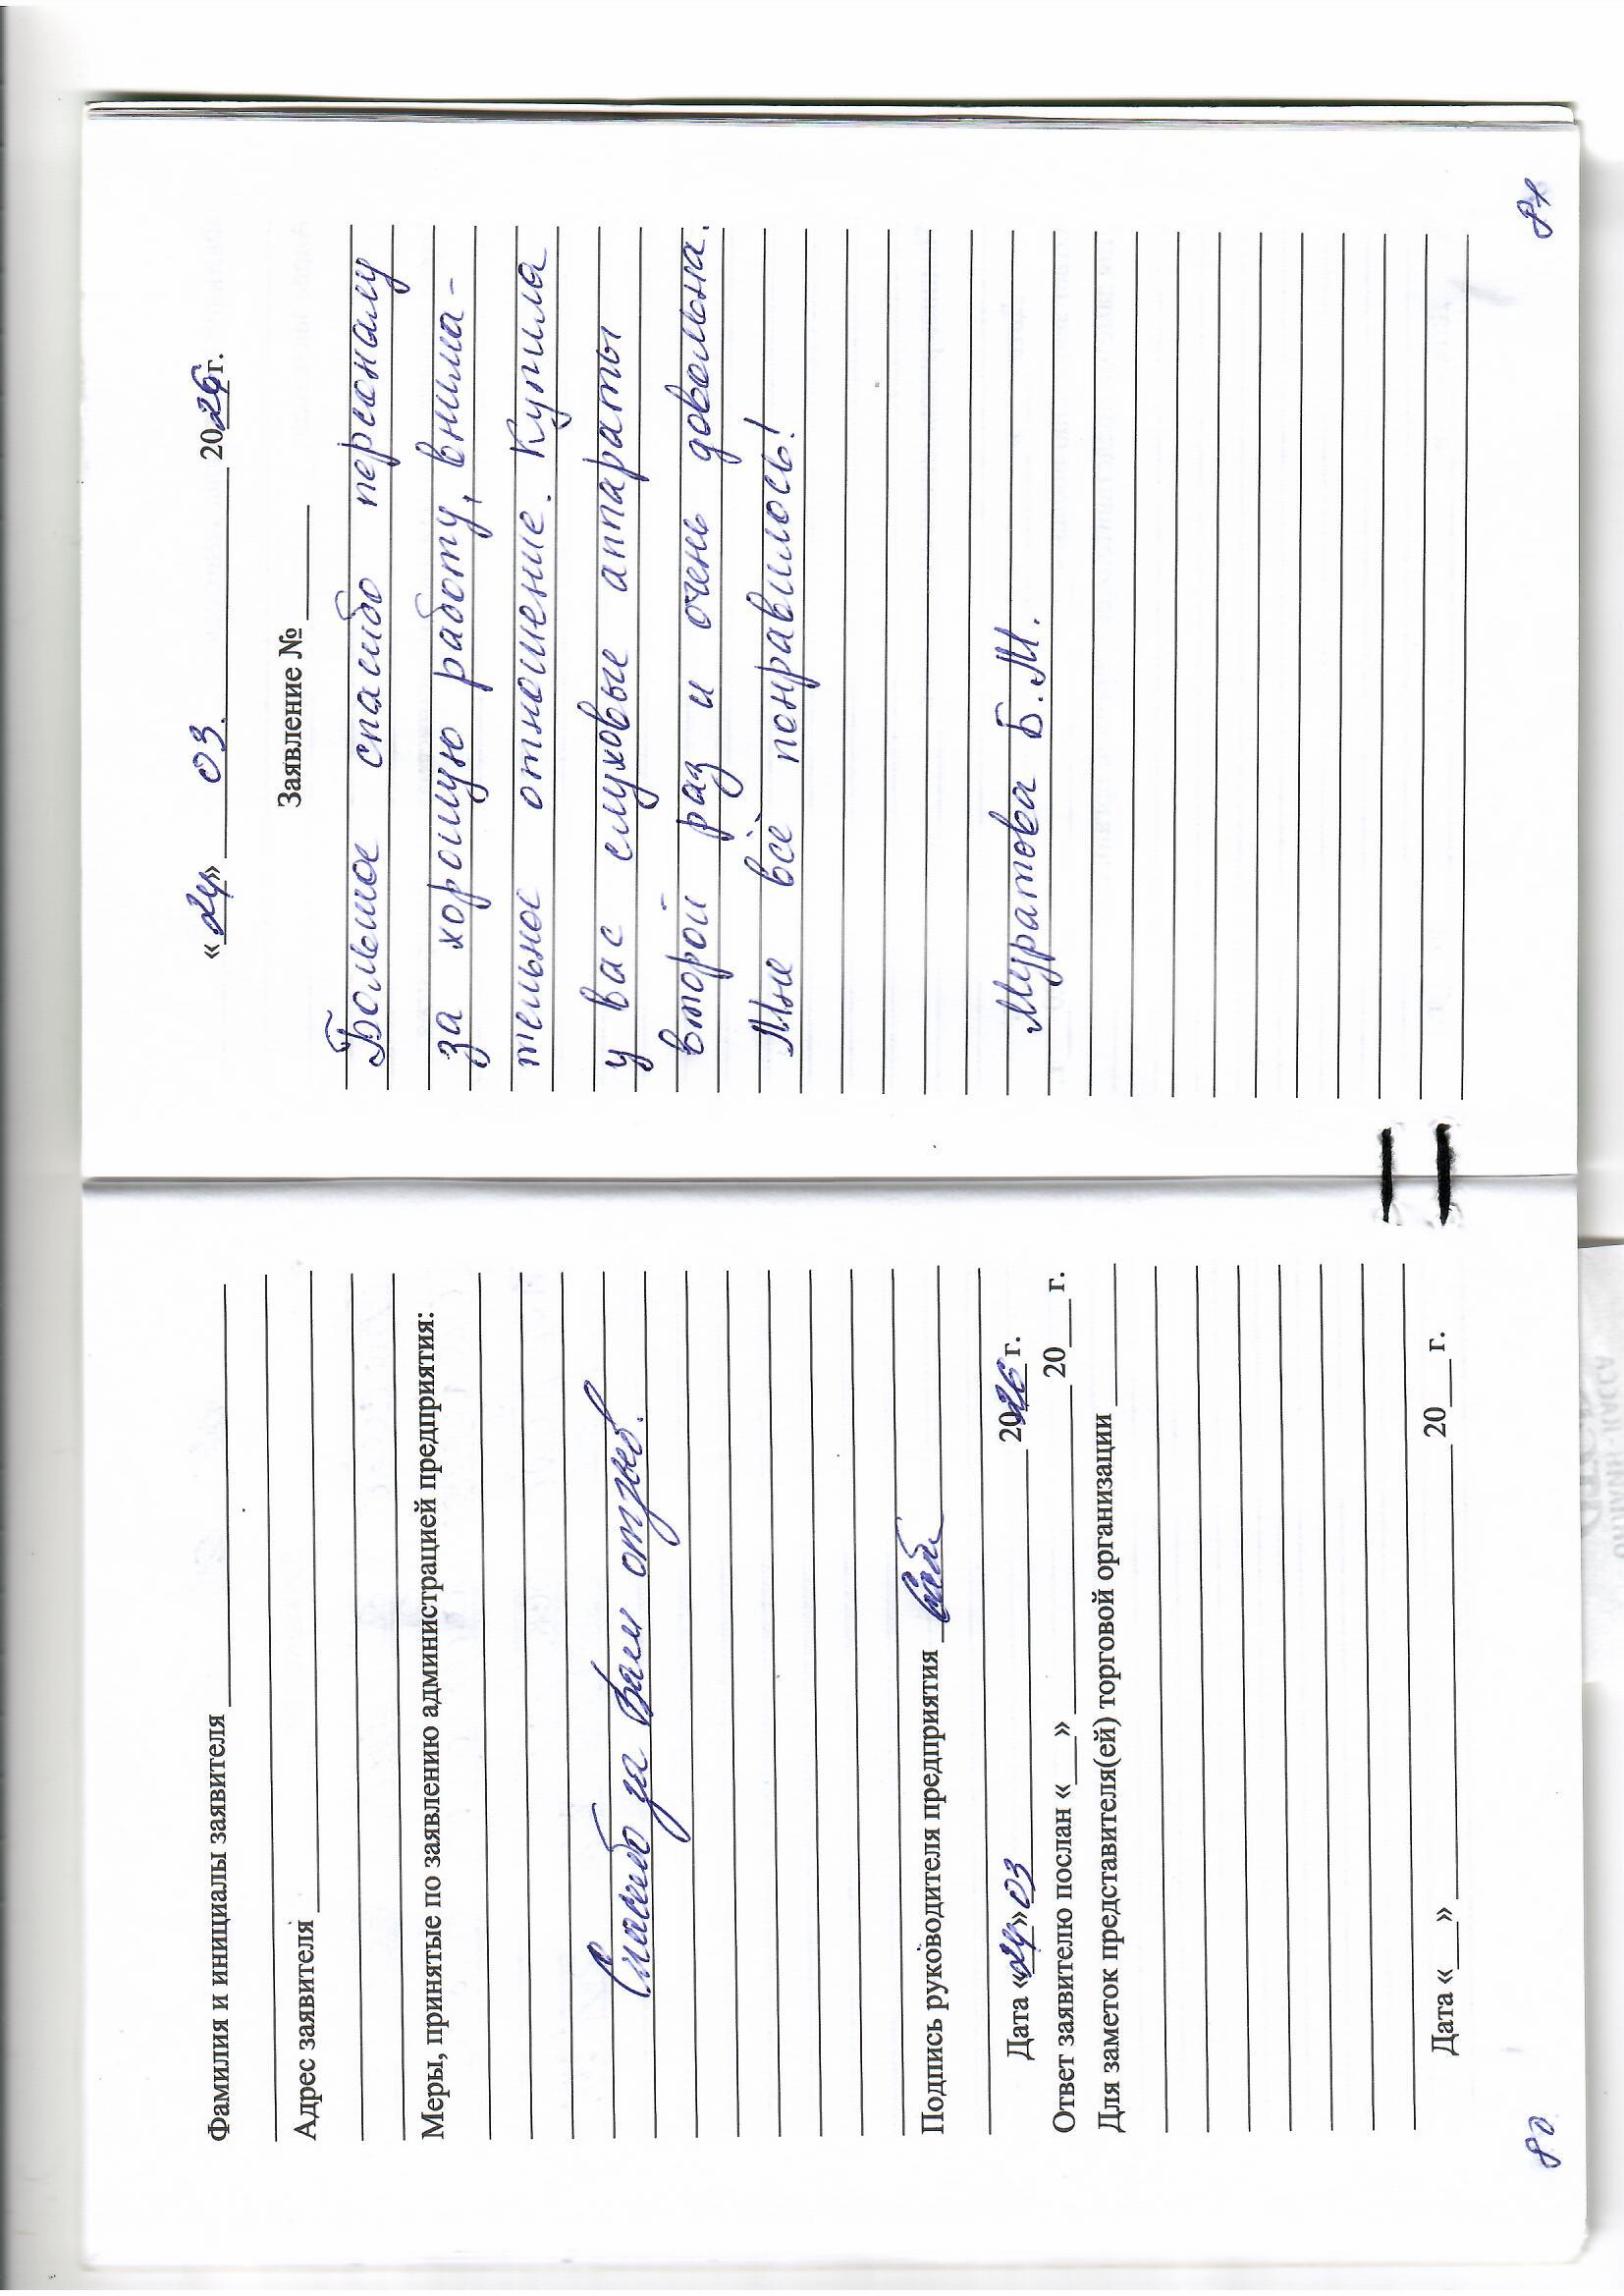 Фамилия и инициалы заявителя
Адрес заявителя
Меры, принятые по заявлению администрацией предприятия:
Спасибо за Ваш отзыв.
Подпись руководителя предприятия
Дата «24» 03 2026 г.
Ответ заявителю послан «___» 20___г.
Для заметок представителя(ей) торговой организации
Дата «___» 20___г.
80
«24» 03. 2026г.
Заявление №
Большое спасибо персоналу
за хорошую работу, внима-
тельное отношение. Купила
у вас слуховые аппараты
второй раз и очень довольна.
Мне всё понравилось!
Муратова Б.М.
81